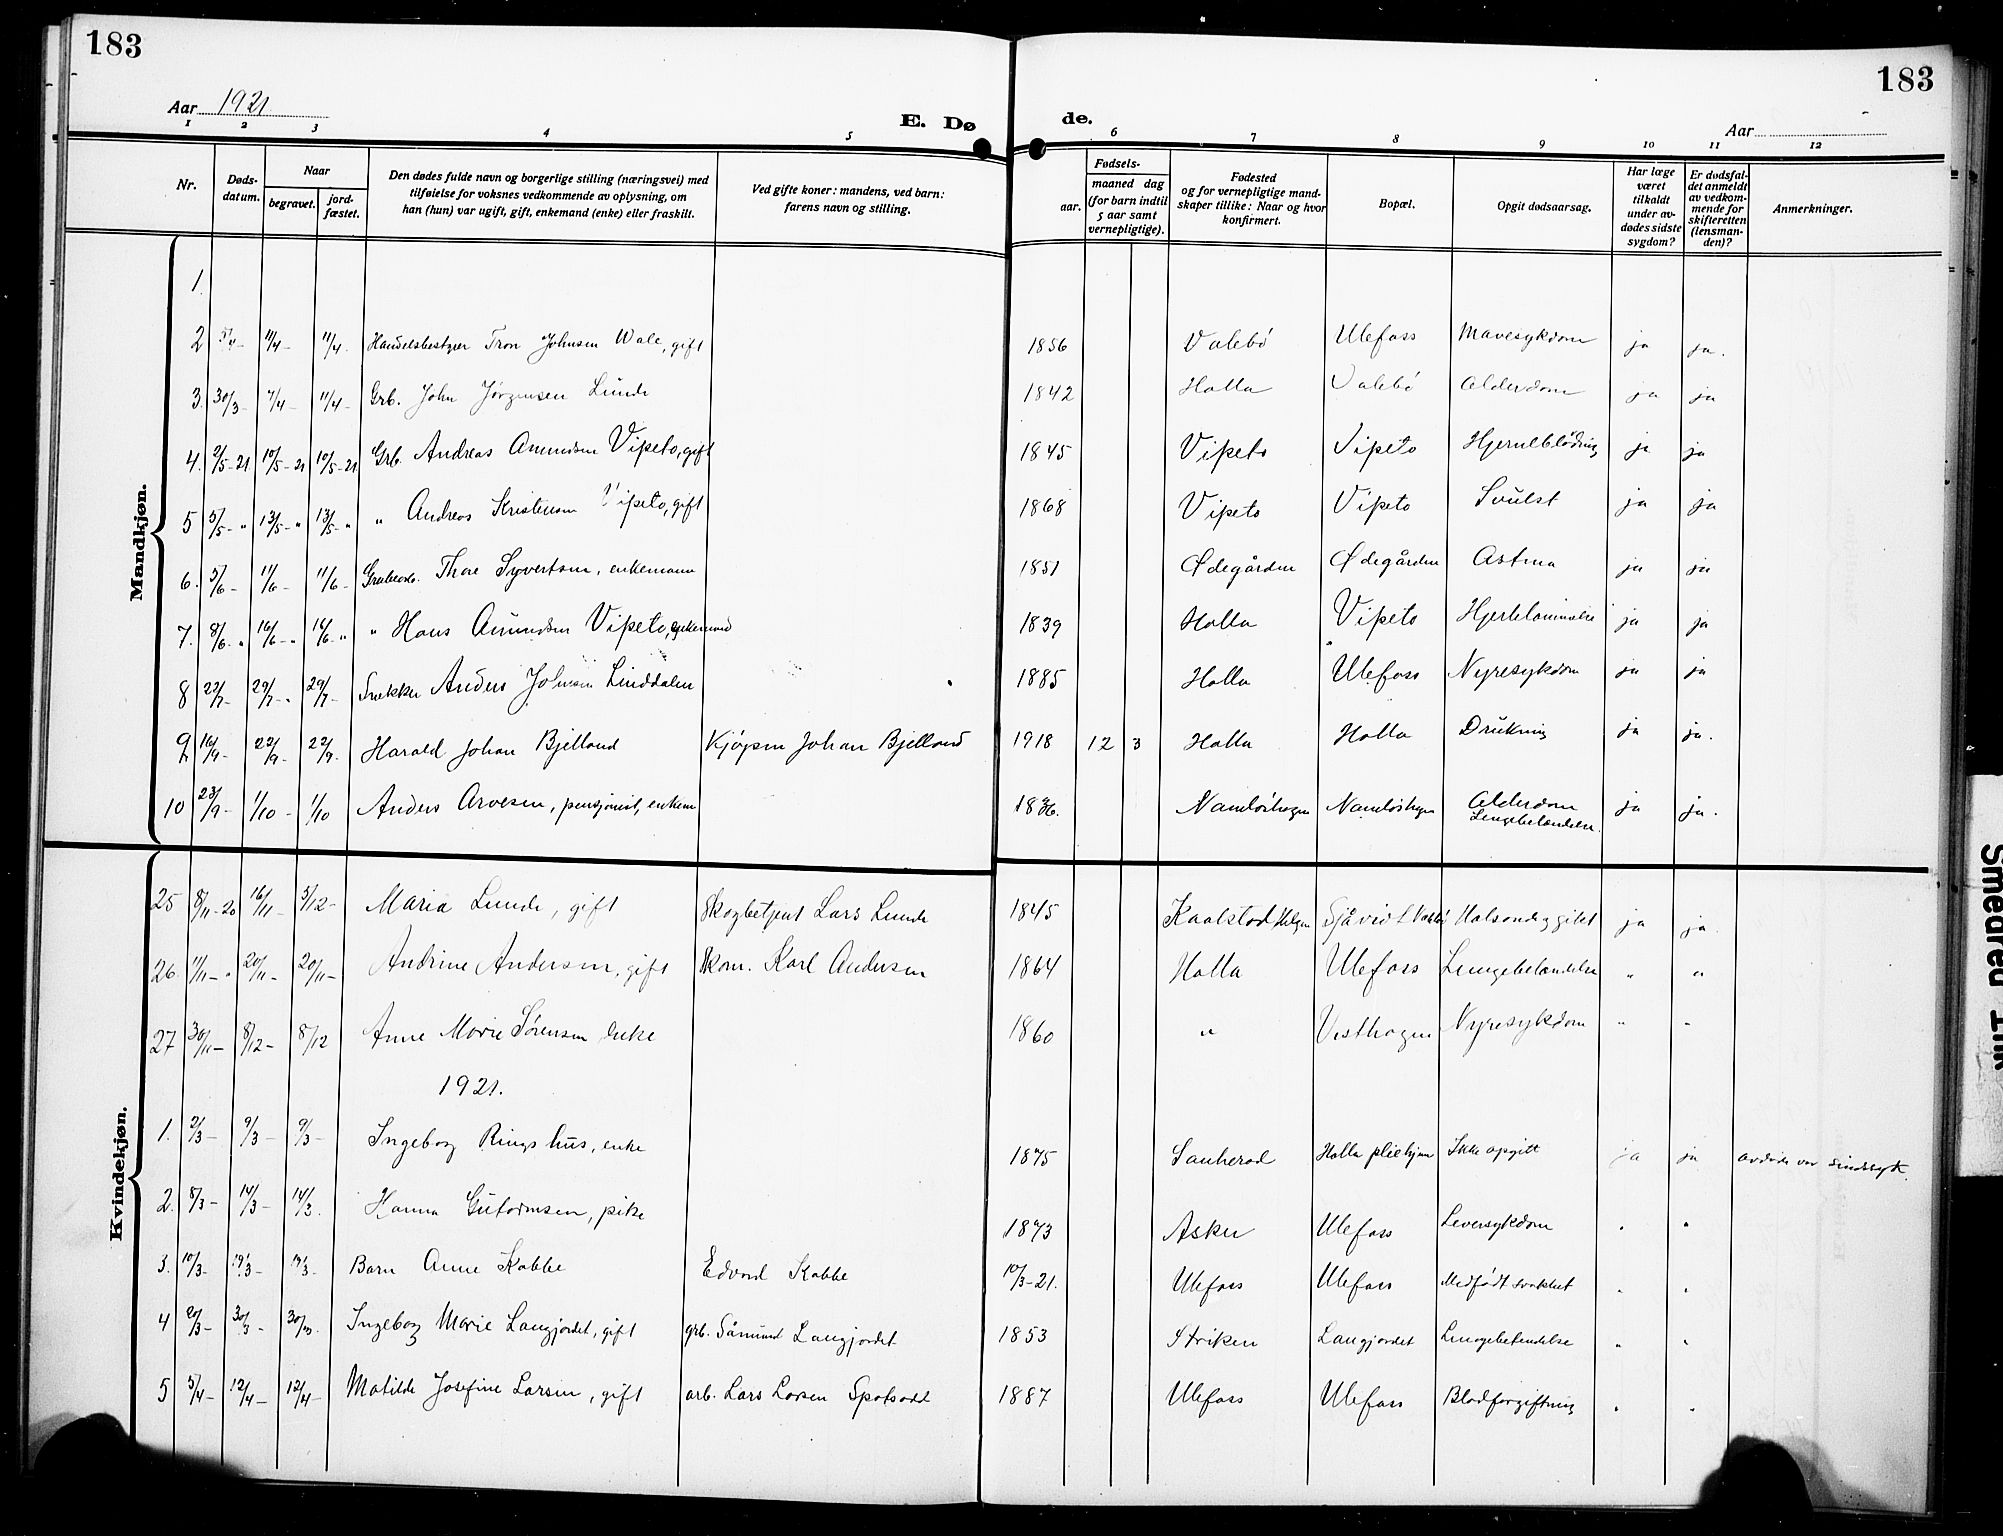 183
183
Aar 1921
E. Dø
de.
Aar
1 2 3 4 5 6 7 8 9 10 11 12
Nr.
Døds-
datum.
Naar
begravet.
jord-
fæstet.
Den dødes fulde navn og borgerlige stilling (næringsvei) med
tilføielse for voksnes vedkommende av oplysning, om
han (hun) var ugift, gift, enkemand (enke) eller fraskilt.
Ved gifte koner: mandens, ved barn:
farens navn og stilling.
Fødsels-
aar.
maaned dag
(for barn indtil
5 aar samt
vernepligtige).
Fødested
og for vernepligtige mand-
skaper tillike: Naar og hvor
konfirmert.
Bopæl.
Opgit dødsaarsag.
Har læge
været
tilkaldt
under av-
dødes sidste
sygdom?
Er dødsfal-
det anmeldt
av vedkom-
mende for
skifteretten
(lensman-
den)?
Anmerkninger.
Mandkjøn.
1.
2 5/4- 11/4- 11/4- Handelsbestyrer Tron Johnsen Wale, gift 1856 Valebö Ulefoss Mavesykdom ja ja.
3. 30/3- 7/4- 11/4- Grb. John Jørgensen Lunde 1842 Holla Valebö Alderdom ja ja
4. 2/5-21 10/5-21 10/5-21 Grb. Andreas Amundsen Vipeto, gift 1845 Vipeto Vipeto Hjerneblödning ja ja
5 5/5- " 13/5- " 13/5- " " Andreas Kristensen Vipeto, gift 1868 Vipeto Vipeto Svulst ja ja
6. 5/6- 11/6- 11/6- Grubearb. Thore Syvertsen, enkemann 1851 Ødegården Ødegården Astma ja ja
7. 8/6- " 16/6- " 16/6- " " Hans Amundsen Vipeto, enkemand 1839 Holla Vipeto ja ja
8 22/7- 29/7- 29/7- Snekker Anders Johnsen Linddalen 1885 Holla Ulefoss Nyresykdom ja ja
9 16/9- 22/9- 22/9- Harald Johan Bjelland Kjøpm Johan Bjelland 1918 12 3 Holla Holla Drukning ja ja.
10 23/9- 1/10- 1/10 Anders Arvesen, pensjonist, enkem 1836. Namløshagen Namløshagen Alderdom
Lungebetændelse. ja ja.
Kvindekjøn.
25 8/11-20 16/11- 5/12- Maria Lunde, gift Skogbetjent Lars Lunde 1845 Kaalstad Helgen Sjåvid Valebö ja ja
26. 11/11- " 20/11- 20/11- Andrine Andersen, gift Skom. Karl Andersen 1864 Holla Ulefoss Lungebetændelse " "
27 30/11- 8/12- 8/12 Anne Marie Sørensen enke 1860 " Vesthagen Nyresykdom " "
1921.
1. 2/3- 9/3- 9/3- Ingeborg Ringshus, enke 1875 Sauherad Holla pleiehjem Ikke opgitt ja ja avdøde var sindssyk.
2. 8/3- 14/3- 14/3. Hanna Gutormsen, pike 1873 Asker Ulefoss Leversykdom " "
3. 10/3- 19/3- 19/3- Barn Anne Kabbe Edvard Kabbe 10/3-21. Ulefoss Ulefoss Medfödt svakhet " "
4 20/3- 30/3- 30/3. Ingeborg Marie Langjordet, gift grb. Såmund Langjordet 1853 Striken Langjordet Lungebetendelse " "
5 5/4- 12/4- 12/4- Matilde Josefine Larsen, gift arb. Lars Larsen 1887 Ulefoss Ulefoss Blodforgiftning " "
Smeared Ink